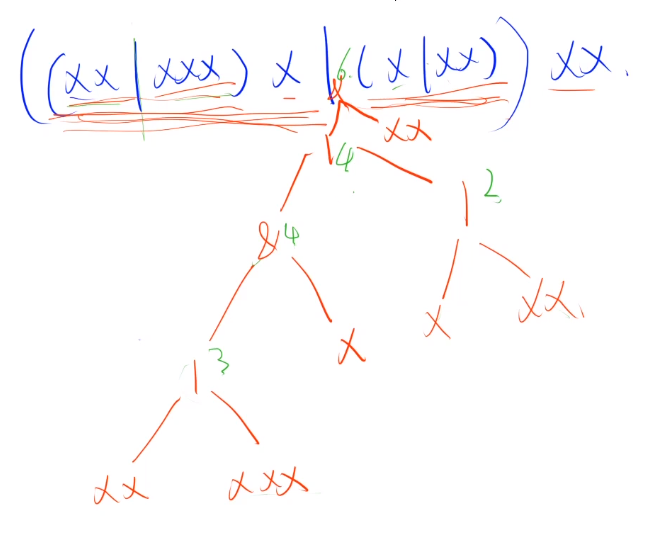 ((xx|xxx)x|(x|xx))xx.
6
& xx
| 4
| 2
& 4
x xx.
x
| 3
xx xxx